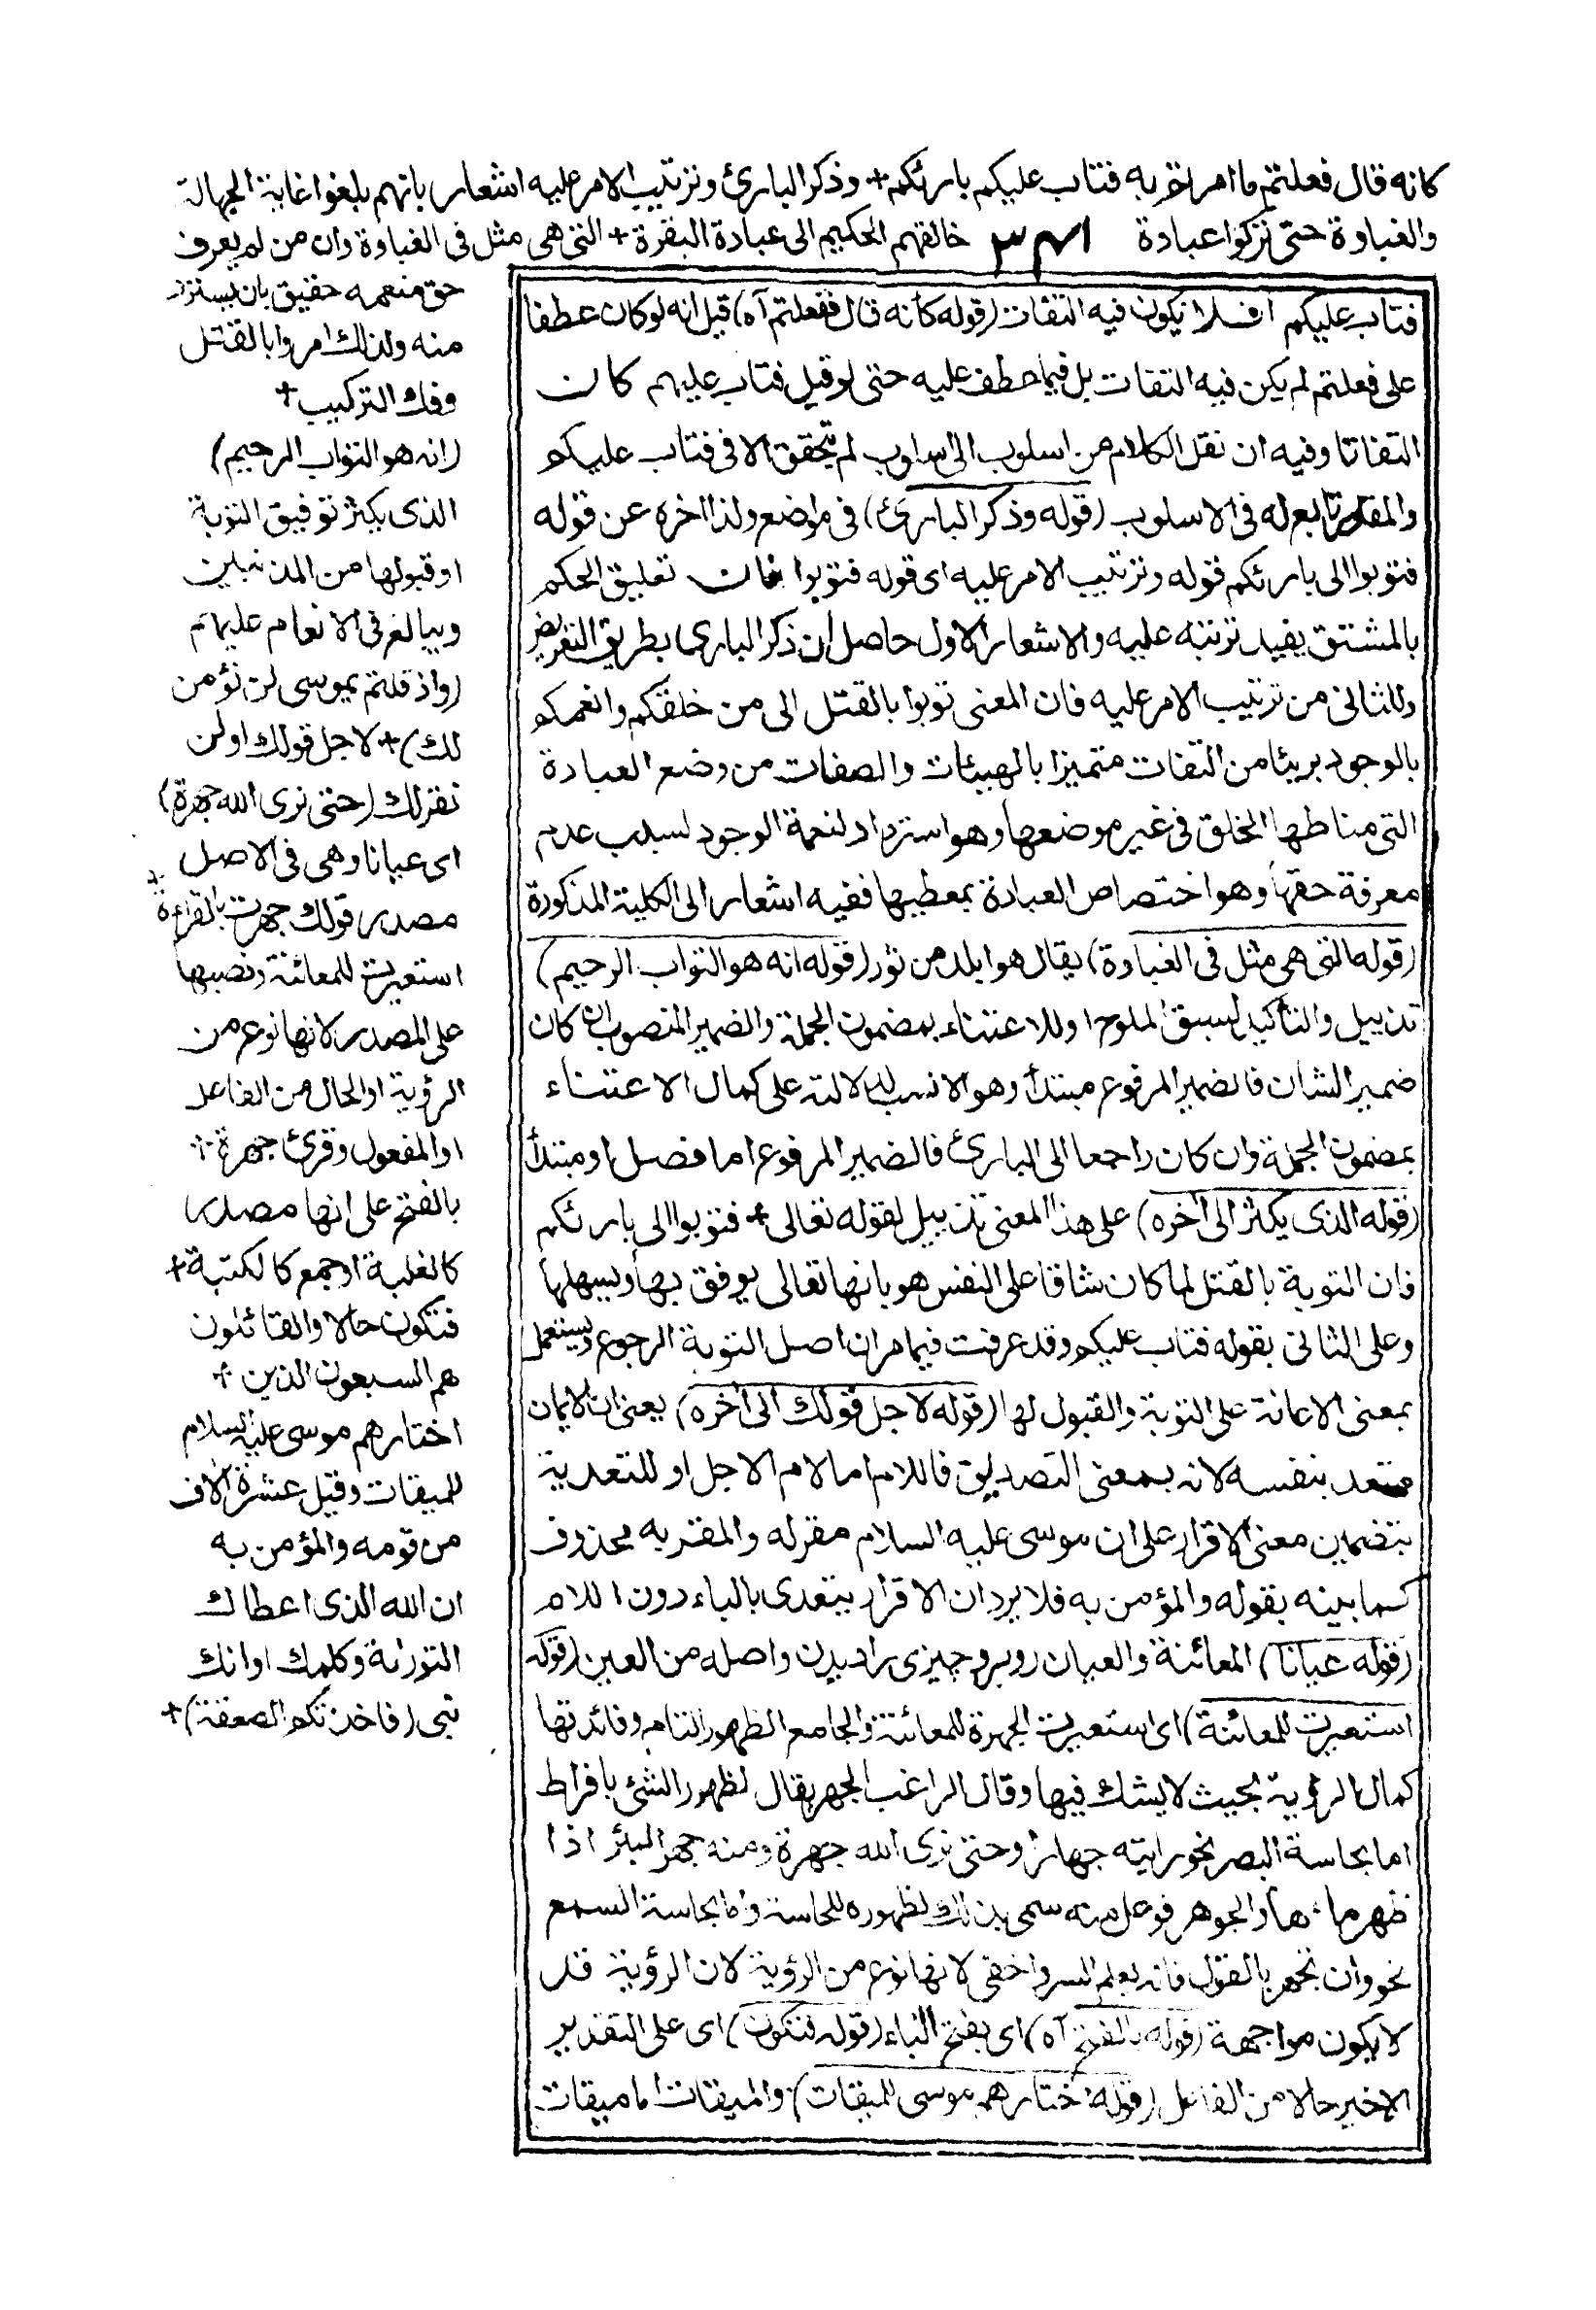 كانه قال فعلتم ما امرتم به فتاب عليكم بارئكم + وذكر البارئ وترتيب الامر عليه اشعار بانهم بلغوا غاية الجهالة
والغباوة حتى تركوا عبادة ٣٤١ خالقهم الحكيم الى عبادة البقرة + التى هى مثل فى الغباوة وان من لم يعرف
حق منعمه حقيق بان يسترد
منه ولذلك امروا بالقتل
وفك التركيب +
(انه هو التواب الرحيم)
الذى يكثر توفيق التوبة
او قبولها من المذنبين
ويبالغ فى الانعام عليهم
(واذ قلتم يموسى لن نؤمن
لك) + لاجل قولك او لن
نقر لك (حتى نرى الله جهرة)
اى عيانا وهى فى الاصل
مصدر قولك جهرت بالقراءة
استعيرت للمعائنة ونصبها
على المصدر لانها نوع من
الرؤية او الحال من الفاعل
او المفعول وقرئ جهرة +
بالفتح على انها مصدر
كالغلبة او جمع كالكتبة +
فتكون حالا والقائلون
هم السبعون الذين +
اختارهم موسى عليه السلام
للميقات وقيل عشرة آلاف
من قومه والمؤمن به
ان الله الذى اعطاك
التورىة وكلمك او انك
نبى (فاخذتكم الصعقة) +
فتاب عليكم افلا يكون فيه التفات (قوله كأنه قال ففعلتم آه) قيل انه لو كان عطفا
على فعلتم لم يكن فيه التفات بل فيما عطف عليه حتى لو قيل فتاب عليهم كان
التفاتا وفيه ان نقل الكلام من اسلوب الى اسلوب لم يتحقق الا فى فتاب عليكم
والمقدر تابع له فى الاسلوب (قوله وذكر البارئ) فى مواضع ولذا اخره عن قوله
فتوبوا الى بارئكم قوله وترتيب الامر عليه اى قوله فتوبوا فان تعليق الحكم
بالمشتق يفيد ترتبه عليه والاشعار الاول حاصل من ذكر البارى بطريق التعريض
والثانى من ترتيب الامر عليه فان المعنى توبوا بالقتل الى من خلقكم وانعمكم
بالوجود بريئا من التفات متميزا بالهيئات والصفات من وضع العبادة
التى مناطها الخلق فى غير موضعها وهو استرداد لنعمة الوجود لسبب عدم
معرفة حقها وهو اختصاص العبادة بمعطيها ففيه اشعار الى الكلية المذكورة
(قوله التى هى مثل فى الغباوة) يقال هو ابلد من ثور (قوله انه هو التواب الرحيم)
تذييل والتأكيد لسبق الملوح او للاعتناء بمضمون الجملة والضمير المنصوب ان كان
ضمير الشان فالضمير المرفوع مبتدأ وهو الانسب لدلالته على كمال الاعتناء
بمضمون الجملة وان كان راجعا الى البارئ فالضمير المرفوع اما فصل او مبتدأ
(قوله الذى يكثر الى آخره) على هذا المعنى تذييل لقوله تعالى + فتوبوا الى بارئكم
فان التوبة بالقتل لما كان شاقا على النفس هو بانها تعالى يوفق بها ويسهلها
وعلى الثانى بقوله فتاب عليكم وقد عرفت فيما مر ان اصل التوبة الرجوع ويستعمل
بمعنى الاعانة على التوبة والقبول لها (قوله لاجل قولك الى آخره) يعنى ان الايمان
متعد بنفسه لانه بمعنى التصديق فاللام اما لام الاجل او للتعدية
بتضمين معنى الاقرار على ان موسى عليه السلام مقرله والمقر به محذوف
كما بينه بقوله والمؤمن به فلا يرد ان الاقرار يتعدى بالباء دون اللام
(قوله عيانا) المعائنة والعيان روبرو چيزى را ديدن واصله من العين (قوله
استعيرت للمعائنة) اى استعيرت الجهرة للمعائنة والجامع الظهور التام وفائدتها
كمال الرؤية بحيث لا يشك فيها وقال الراغب الجهر يقال لظهور الشئ بافراط
اما بحاسة البصر نحو رايته جهارا وحتى نرى الله جهرة ومنه جهر البئر اذا
ظهر ماءها والجوهر فوعل منه سمى بذلك لظهوره للحاسة واما بحاسة السمع
نحو وان تجهر بالقول فانه يعلم السر واخفى لانها نوع من الرؤية لان الرؤية قد
لا يكون مواجهة (قوله بالفتح آه) اى بفتح الهاء (قوله فتكون) اى على التقدير
الاخير حالا من الفاعل (قوله اختارهم موسى للميقات) والميقات اما ميقات